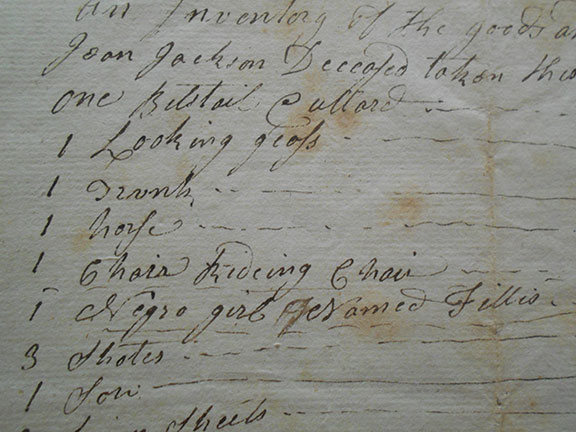 An Inventory of the goods an
Jean Jackson Deceased taken this
one
1 Looking glass
1 Trunk
1 horse
1 Chair Rideing Chair
1 Negro girl Named Fillis
3 Shotes
1 Sow
Sheets